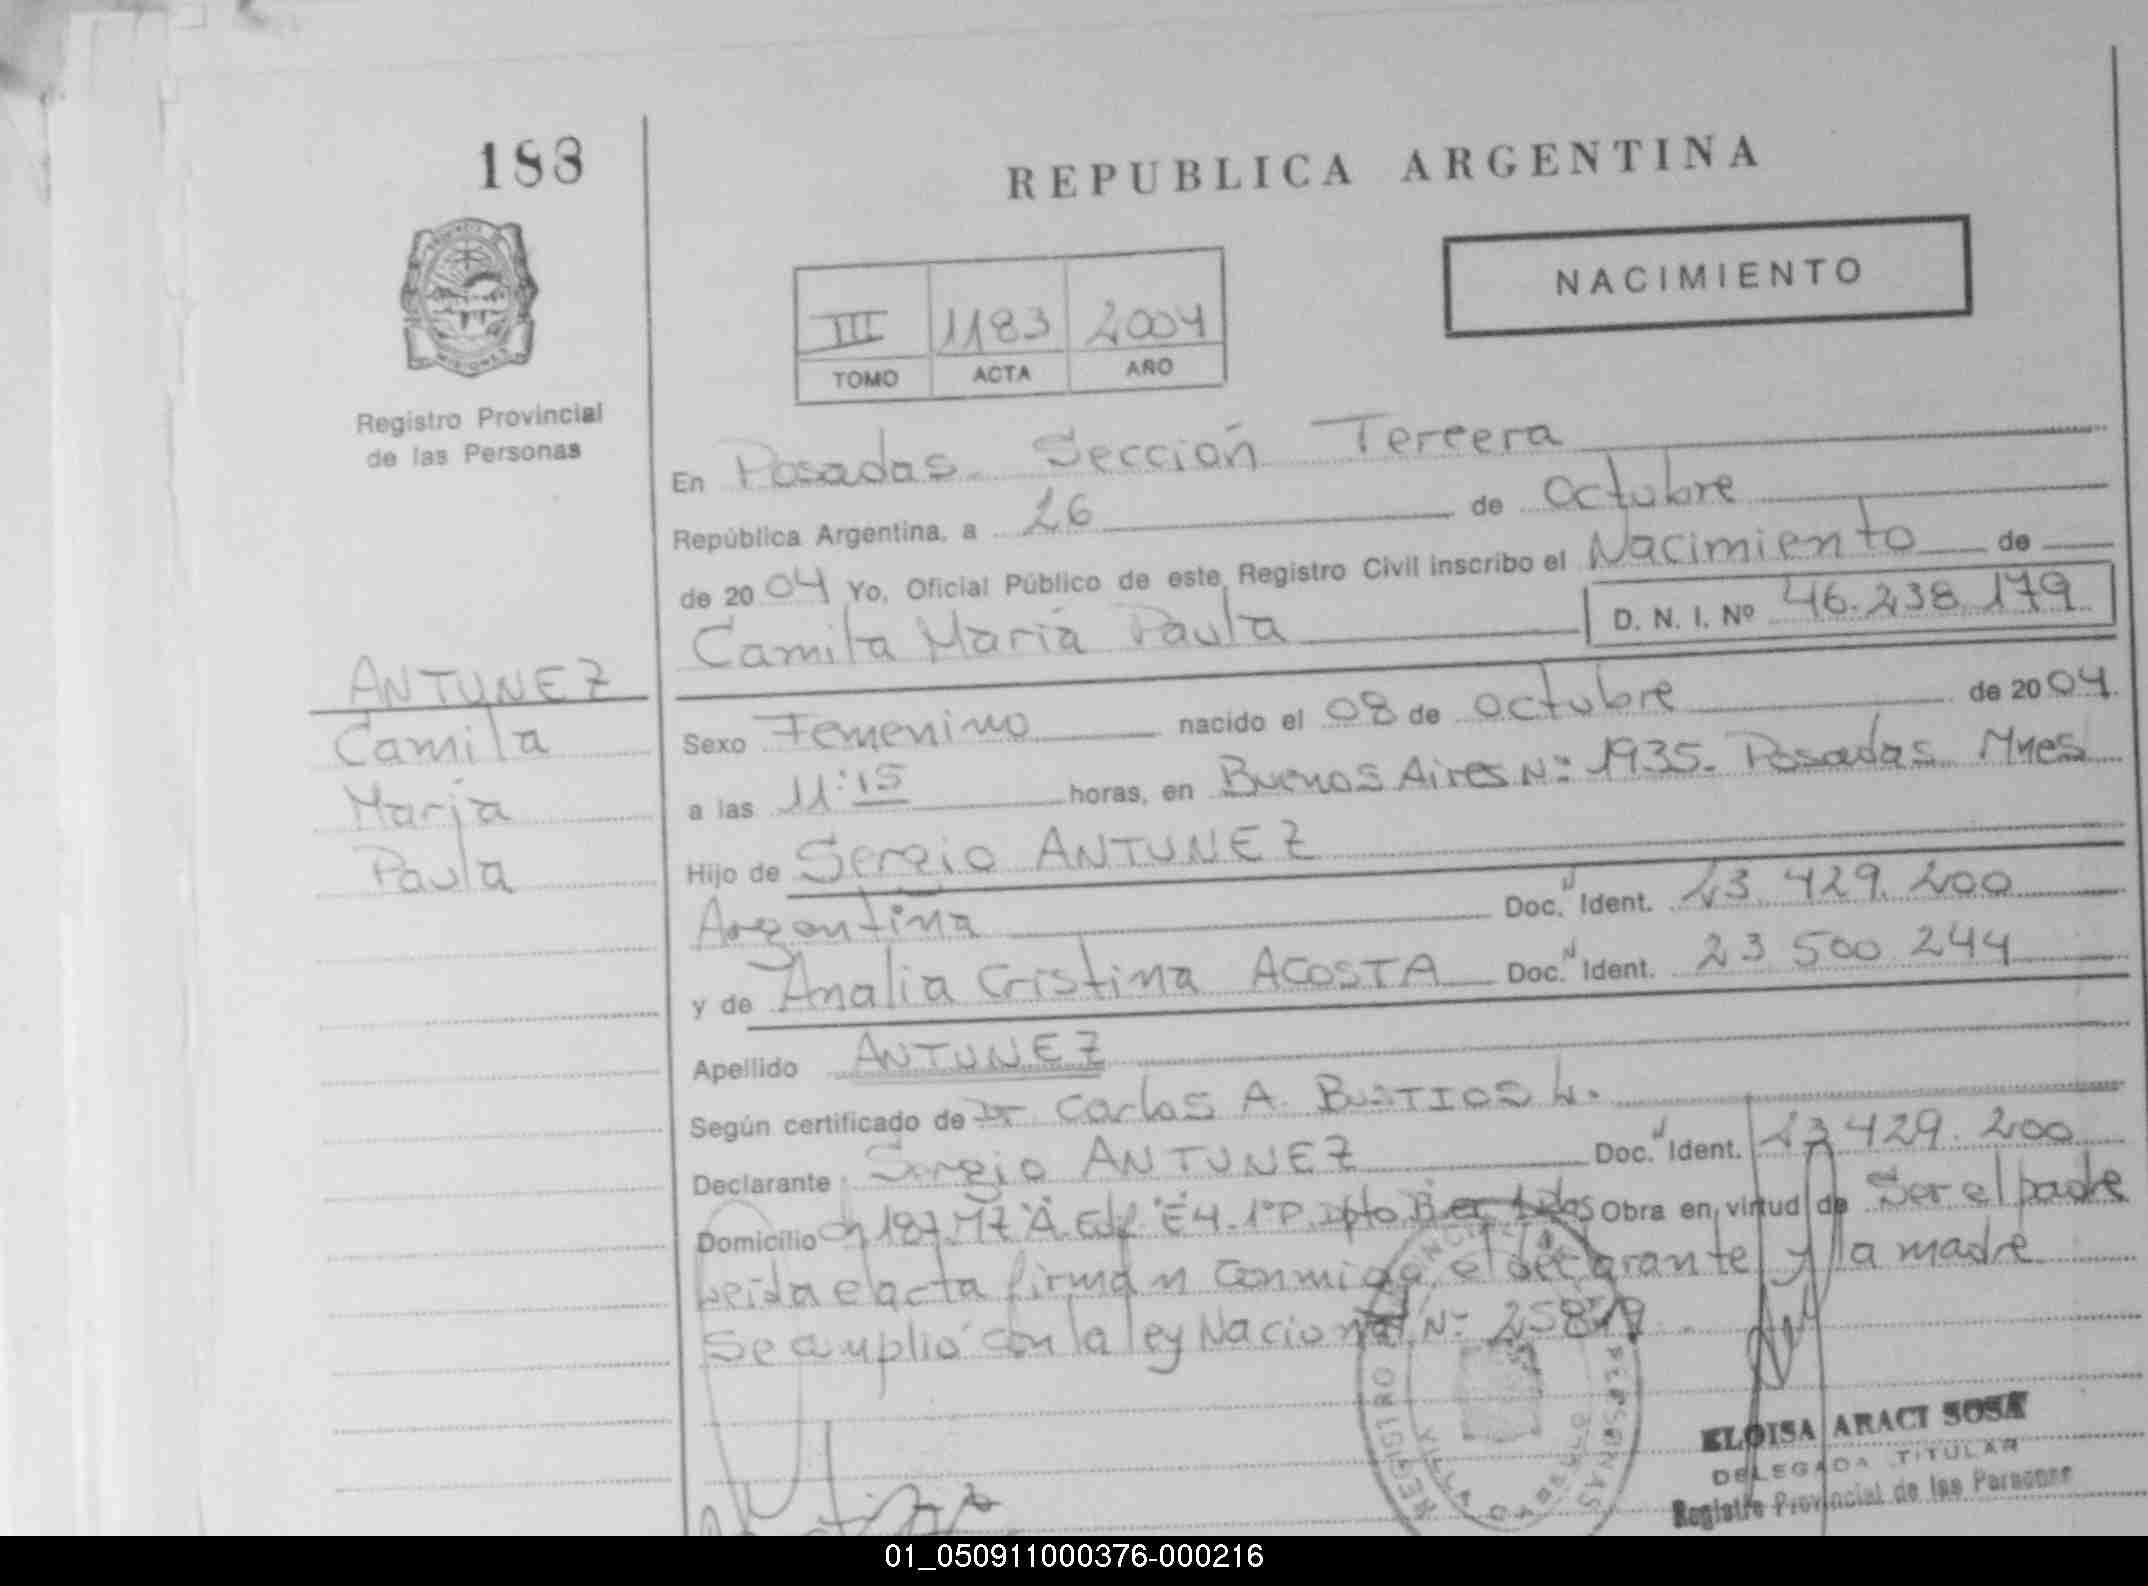 183
REPUBLICA ARGENTINA
NACIMIENTO
III 1183 2004
TOMO ACTA AÑO
MISIONES
Registro Provincial
de las Personas
En Posadas. Sección Tercera
República Argentina, a 26 de Octubre
de 2004 Yo, Oficial Público de este Registro Civil inscribo el Nacimiento de
Camila María Paula D. N. I. Nº 46.238.179
ANTUNEZ
Camila
María
Paula
Sexo Femenino nacido el 08 de octubre de 2004
a las 11:15 horas, en Buenos Aires Nº 1935. Posadas Mnes
Hijo de Sergio ANTUNEZ
Argentina Doc. Ident. 23.429.200
y de Analia Cristina ACOSTA Doc. Ident. 23 500 244
Apellido ANTUNEZ
Según certificado de Dr Carlos A. BUSTIOS L.
Declarante Sergio ANTUNEZ Doc. Ident. 23 429.200
Domicilio Ch 187 Mz "A" Edf "E4" 1º P. Dpto B Obra en virtud de Ser el padre
Leida el acta firman conmigo el declarante y la madre
Se amplió con la ley Nacional Nº
REGISTRO PERSONAS
ELOISA ARACI SOSA
DELEGADA TITULAR
Registro Provincial de las Personas
01_050911000376-000216